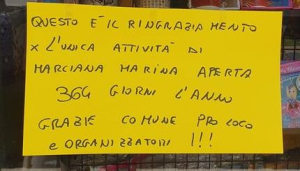 QUESTO E' IL RINGRAZIA MENTO
x L'UNICA ATTIVITÀ DI
MARCIANA MARINA APERTA
364 GIORNI L'ANNO
GRAZIE COMUNE PRO LOCO
e ORGANIZZATORI !!!